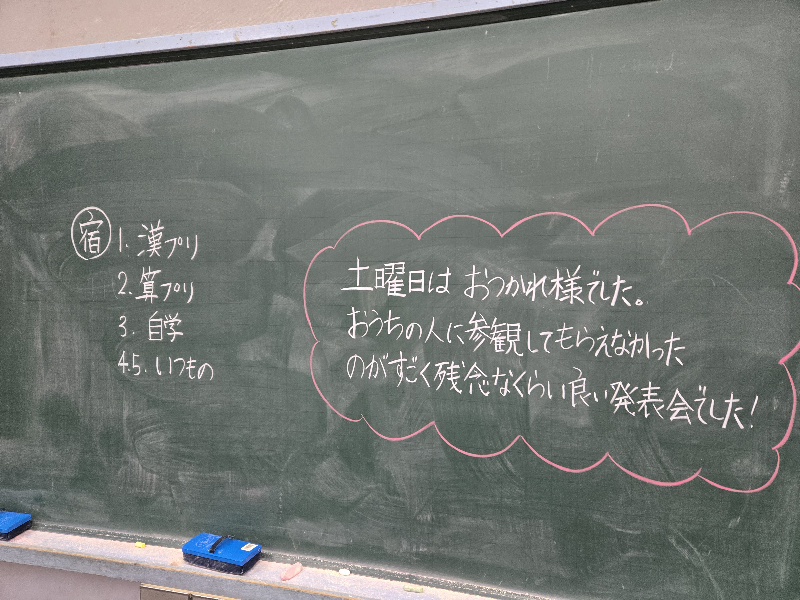 宿 1. 漢プリ
2. 算プリ
3. 自学
4.5. いつもの
土曜日は おつかれ様でした。
おうちの人に参観してもらえなかった
のがすごく残念なくらい良い発表会でした!